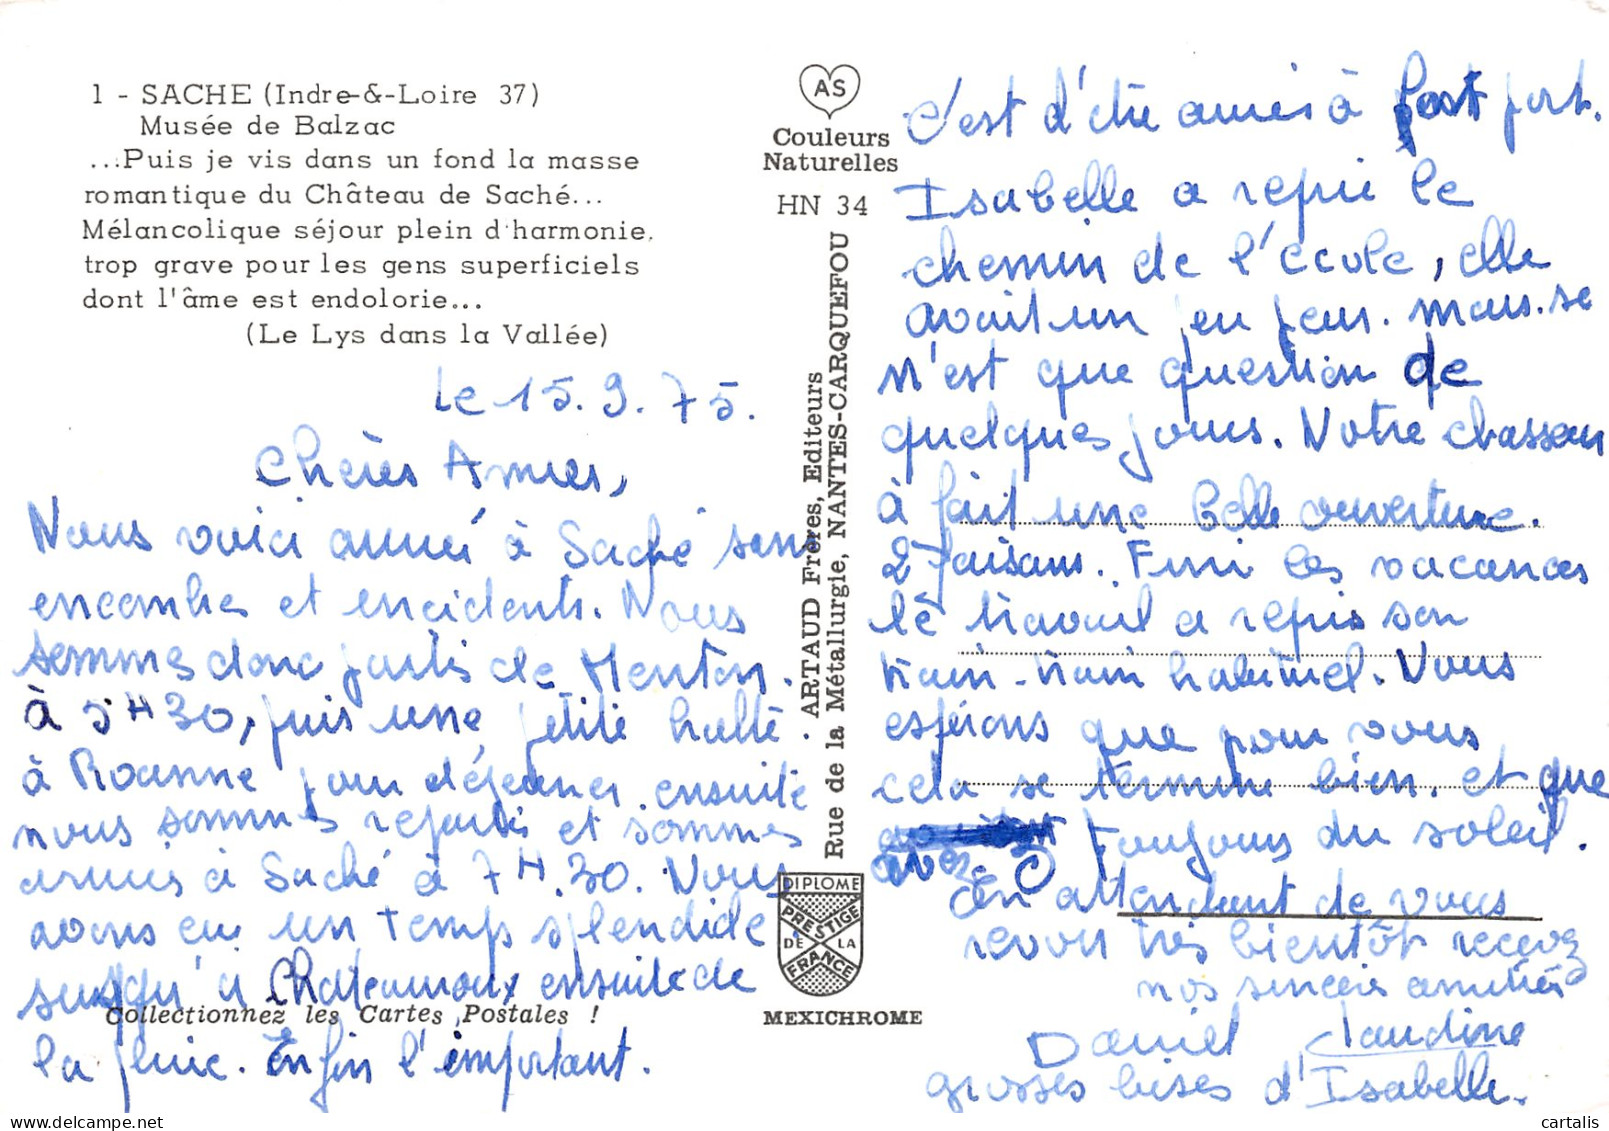 1 - SACHE (Indre-&-Loire 37)
Musée de Balzac
...Puis je vis dans un fond la masse
romantique du Château de Saché...
Mélancolique séjour plein d'harmonie,
trop grave pour les gens superficiels
dont l'âme est endolorie...
(Le Lys dans la Vallée)
le 15.9.75.
Chères Amies,
Nous voici arrivé à Saché sans
encombres et encidents. Nous
sommes donc partis de Menton.
à 5H30, puis une petite halte.
à Roanne pour déjeuner, ensuite
nous sommes repartis et sommes
arrivés à Saché à 7H.30. Nous
avons eu un temps splendide
jusqu'à Chateauroux ensuite de
la pluie. Enfin l'important.
Collectionnez les Cartes Postales !
AS
Couleurs
Naturelles
HN 34
ARTAUD Frères, Editeurs
Rue de la Métallurgie, NANTES-CARQUEFOU
DIPLOME
PRESTIGE
DE LA
FRANCE
MEXICHROME
c'est d'être arrivés à port.
Isabelle a repris le
chemin de l'école, elle
avait un peu peur. mais. se
n'est que question de
quelques jours. Notre chasseur
à fait une belle ouverture.
2 faisans. Fini les vacances
le travail a repris son
train-train habituel. Nous
espérons que pour vous
cela se termine bien. et que
avez toujours du soleil.
En attendant de vous
revoir très bientôt recevez
nos sincères amitiés
Daniel Claudine
grosses bises d'Isabelle.
cartalis